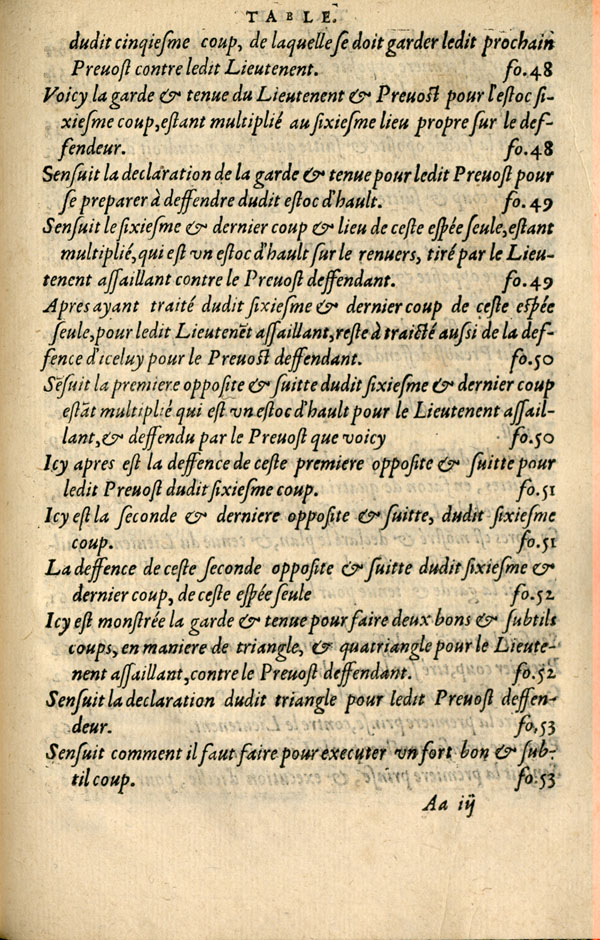 TABLE.
dudit cinqieſme coup, de laquelle ſe doit garder ledit prochain
Preuoſt contre ledit Lieutenent. fo.48
Voicy la garde & tenue du Lieutenent & Preuoſt pour l'eſtoc ſi-
xieſme coup, eſtant multiplié au ſixieſme lieu propre ſur le def-
fendeur. fo.48
Senſuit la declaration de la garde & tenue pour ledit Preuoſt pour
ſe preparer à deffendre dudit eſtoc d'hault. fo.49
Senſuit le ſixieſme & dernier coup & lieu de ceſte eſpée ſeule, eſtant
multiplié, qui eſt vn eſtoc d'hault ſur le renuers, tiré par le Lieu-
tenent aſſaillant contre le Preuoſt deffendant. fo.49
Apres ayant traité dudit ſixieſme & dernier coup de ceſte eſpée
ſeule, pour ledit Lieutenẽt aſſaillant, reſte à traicté auſsi de la def-
fence d'iceluy pour le Preuoſt deffendant. fo.50
Sẽſuit la premiere oppoſite & ſuitte dudit ſixieſme & dernier coup
eſtãt multiplié qui eſt vn eſtoc d'hault pour le Lieutenent aſſail-
lant, & deffendu par le Preuoſt que voicy fo.50
Icy apres eſt la deffence de ceſte premiere oppoſite & ſuitte pour
ledit Preuoſt dudit ſixieſme coup. fo.51
Icy eſt la ſeconde & derniere oppoſite & ſuitte, dudit ſixieſme
coup. fo.51
La deffence de ceſte ſeconde oppoſite & ſuitte dudit ſixieſme &
dernier coup, de ceſte eſpée ſeule fo.52
Icy eſt monſtrée la garde & tenue pour faire deux bons & ſubtils
coups, en maniere de triangle, & quatriangle pour le Lieute-
nent aſſaillant, contre le Preuoſt deffendant. fo.52
Senſuit la declaration dudit triangle pour ledit Preuoſt deffen-
deur. fo.53
Senſuit comment il faut faire pour executer vn fort bon & ſub-
til coup. fo.53
Aa iij